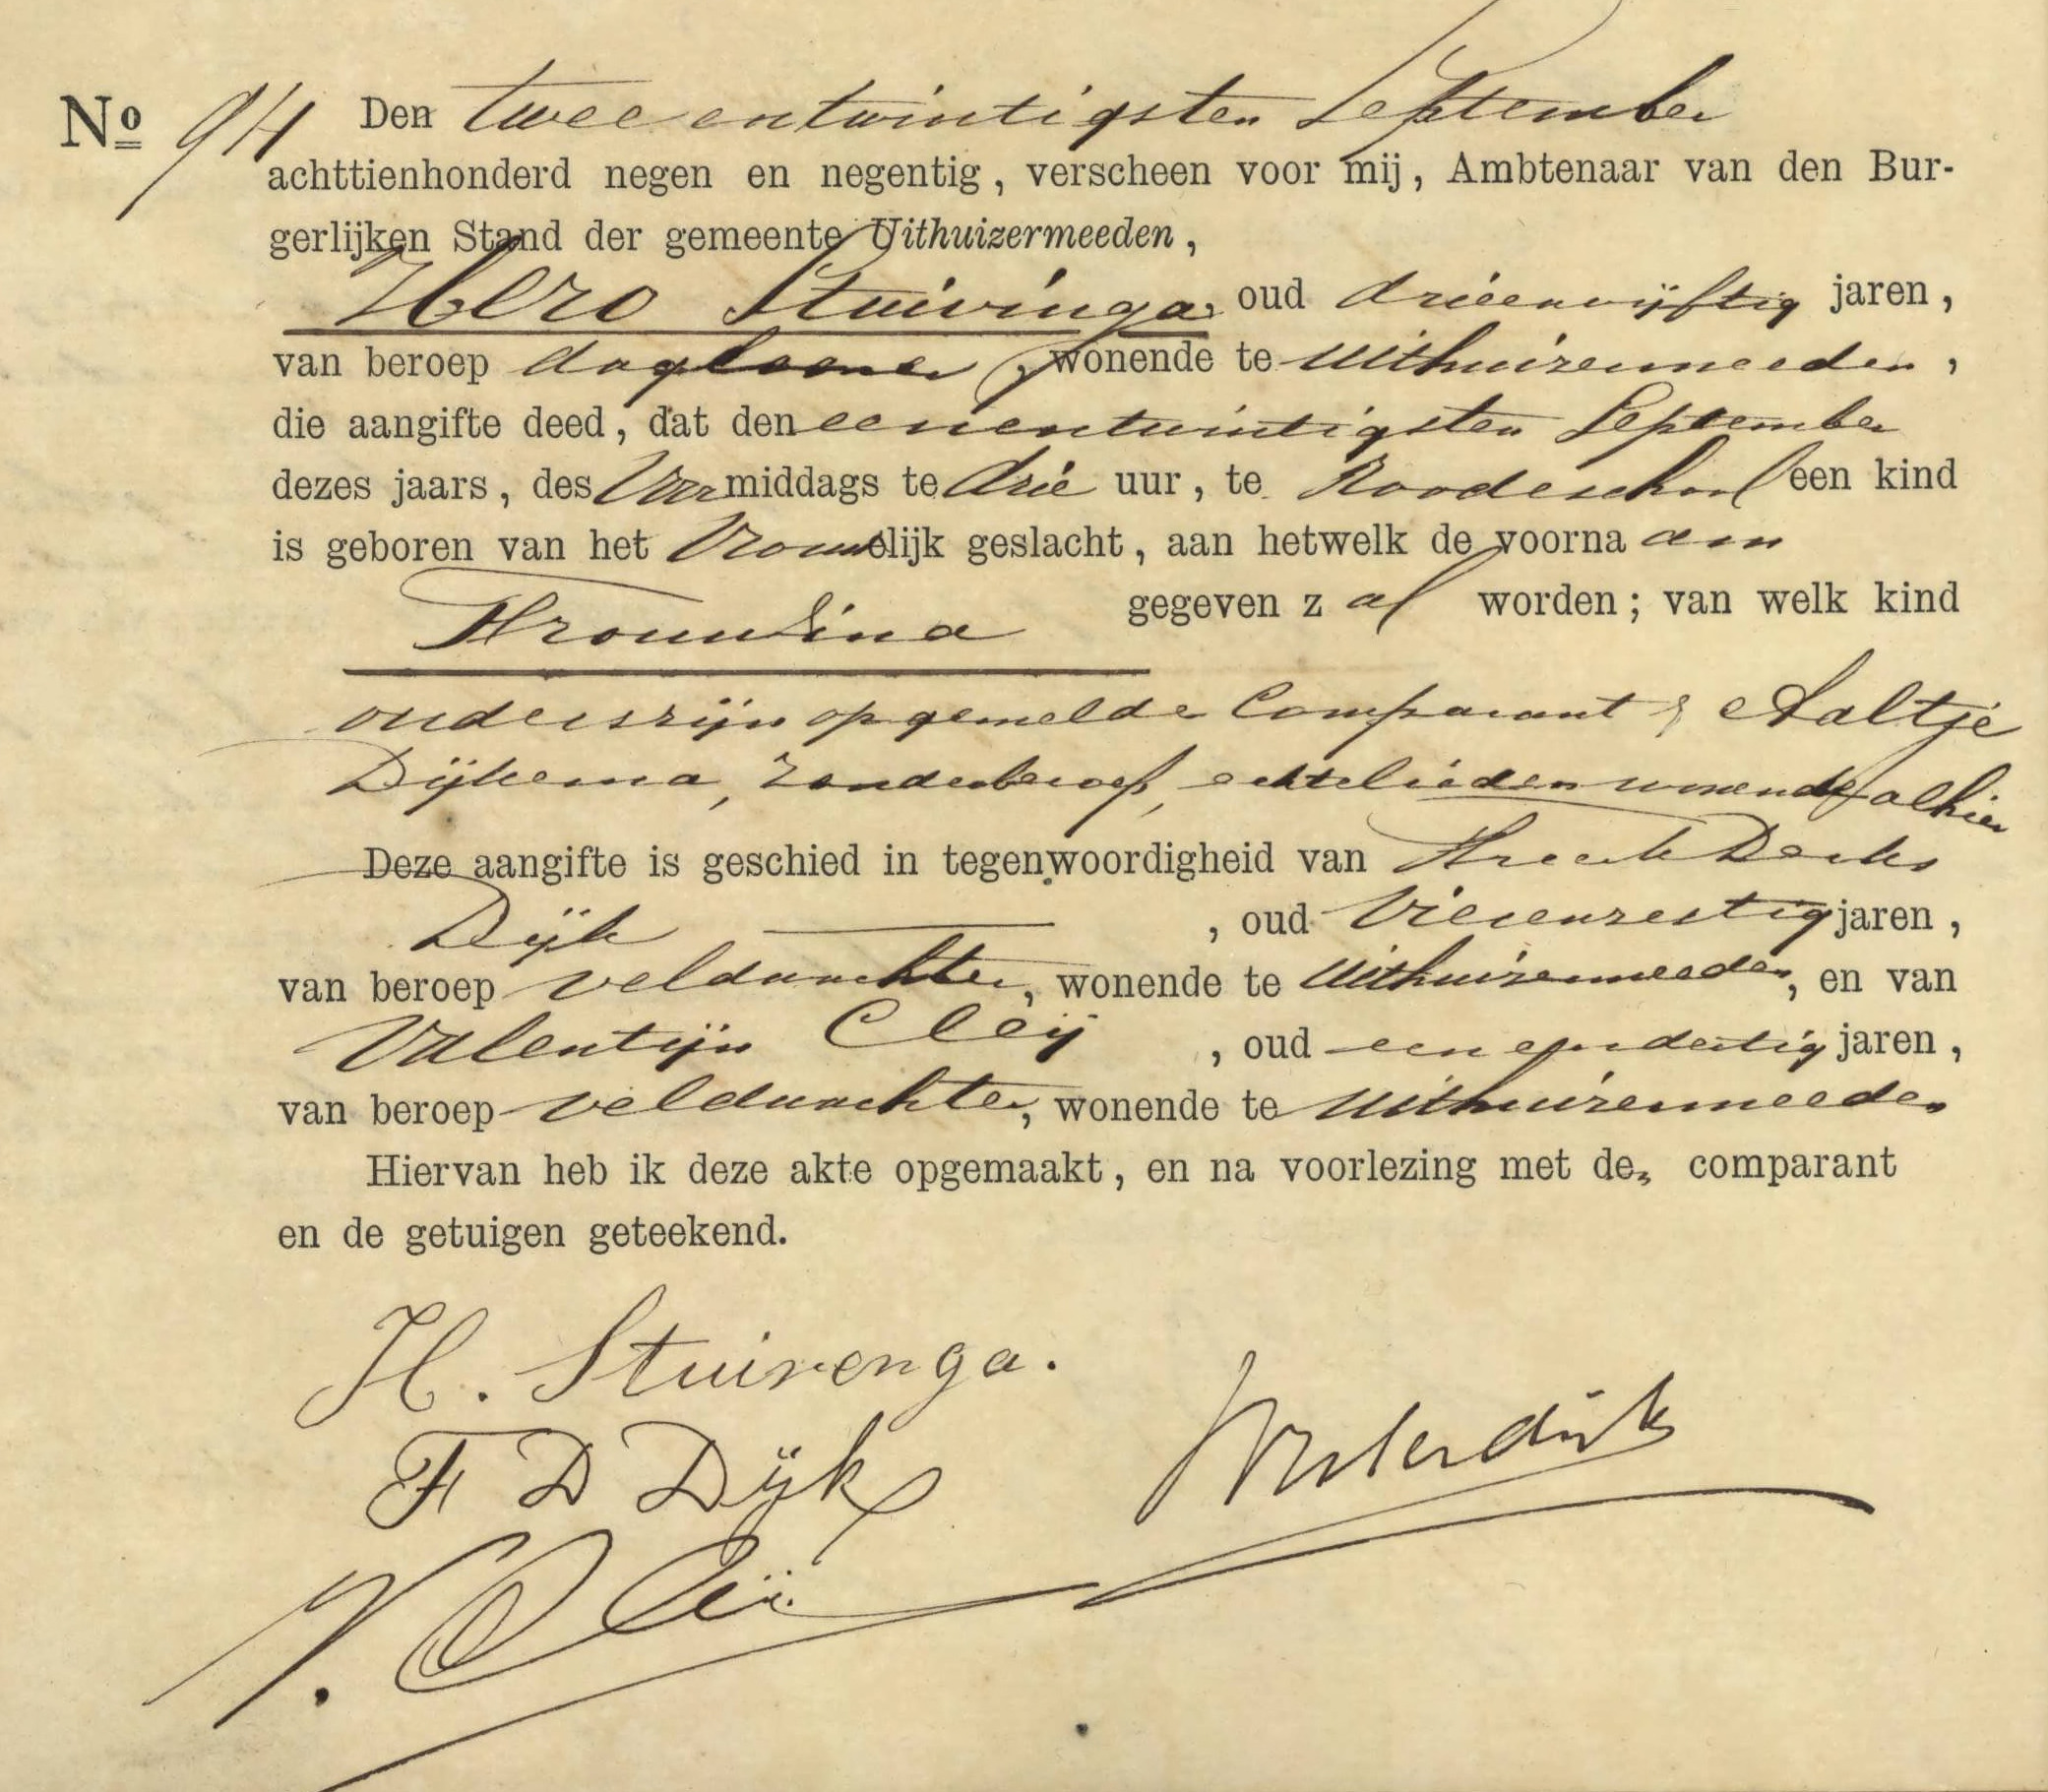 No 94 Den twee entwintigsten September
achttienhonderd negen en negentig, verscheen voor mij, Ambtenaar van den Bur-
gerlijken Stand der gemeente Uithuizermeeden,
Hero Stuivinga, oud drieenvijftig jaren,
van beroep daglooner, wonende te Uithuizermeeden,
die aangifte deed, dat den eenentwintigsten September
dezes jaars, des Voormiddags te drie uur, te Roodeschool een kind
is geboren van het Vrouwelijk geslacht, aan hetwelk de voorna am
Frouwina gegeven z al worden; van welk kind
ouders zijn opgemelde Comparant & Aaltje
Dijkema, zonder beroep, echtelieden wonende alhier
Deze aangifte is geschied in tegenwoordigheid van Freerk Derks
Dijk, oud Vierenzestig jaren,
van beroep veldwachter, wonende te Uithuizermeeden, en van
Valentijn Cleij, oud een en dertig jaren,
van beroep veldwachter, wonende te Uithuizermeeden
Hiervan heb ik deze akte opgemaakt, en na voorlezing met den comparant
en de getuigen geteekend.
H. Stuivenga.
F D Dijk
V. Cleij